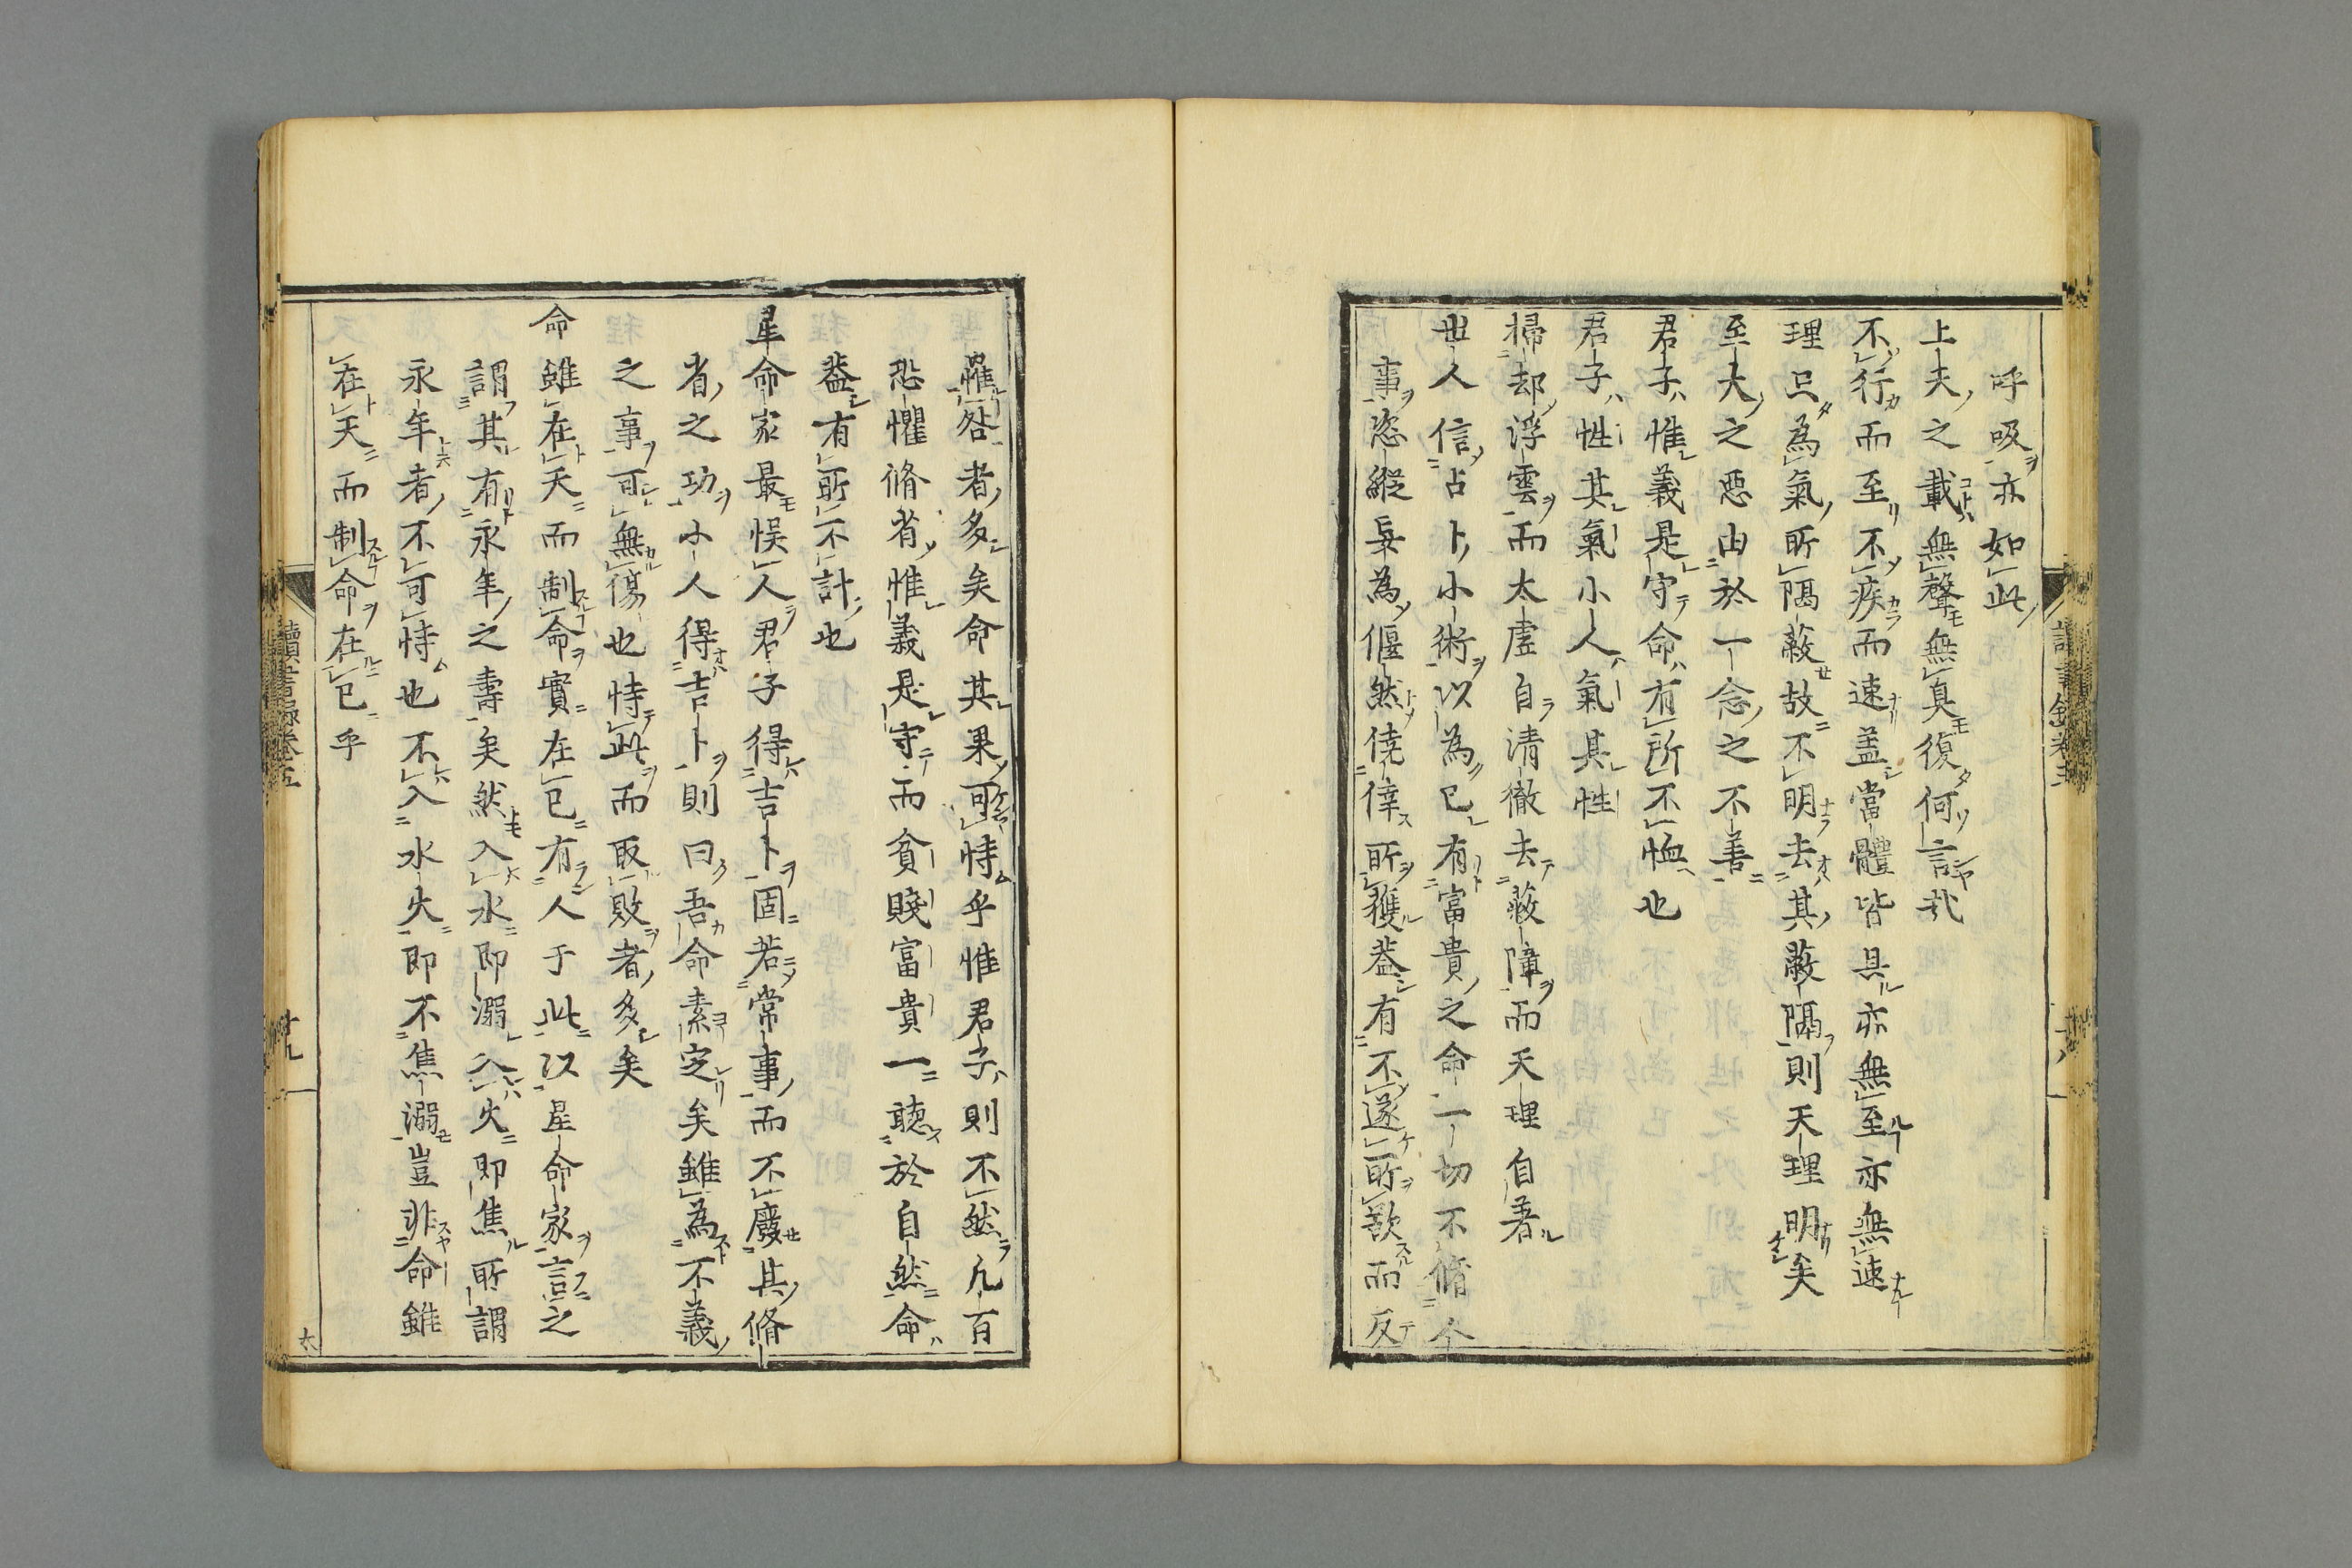 呼吸亦如此
上夫之載無聲無臭復何言哉
不行而至不疾而速蓋當體皆具亦無至亦無速
理只為氣所隔蔽故不明去其蔽隔則天理明矣
至大之惡由於一念之不善
君子惟義是守命有所不恤也
君子性其氣小人氣其性
掃却浮雲而太虛自清徹去蔽障而天理自著
世人信占卜小術以為已有富貴之命一切不脩人
事恣縱妄為偃然僥倖所獲蓋有不遂所欲而反
罹咎者多矣命其果可恃乎惟君子則不然凡百
恐懼脩省惟義是守而貧賤富貴一聽於自然命
蓋有所不計也
星命家最悞人君子得吉卜固若常事而不廢其脩
省之功小人得吉卜則曰吾命素定矣雖為不義
之事可無傷也恃此而取敗者多矣
命雖在天而制命實在已有人于此以星命家言之
謂其有永年之壽矣然入水即溺入火即焦所謂
永年者不可恃也不入水火即不焦溺豈非命雖
在天而制命在已乎
讀書錄卷五